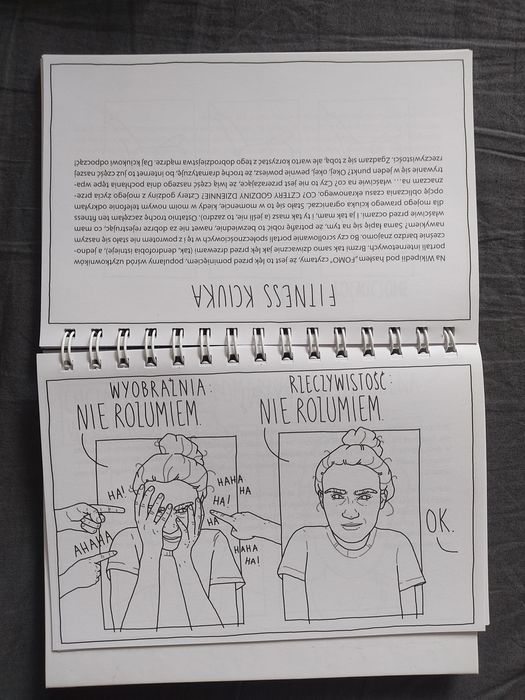 FITNESS KCIUKA
Na Wikipedii pod hasłem „FOMO” czytamy, że jest to lęk przed pominięciem, popularny wśród użytkowników
portali internetowych. Brzmi tak samo dziwacznie jak lęk przed drzewami (tak, dendrofobia istnieje), a jedno-
cześnie bardzo znajomo. Bo czy scrollowanie portali społecznościowych w tę i z powrotem nie stało się naszym
nawykiem? Sama łapię się na tym, że potrafię robić to bezwiednie, nawet nie za dobrze rejestrując, co mam
właściwie przed oczami. I ja tak mam, i ty tak masz (a jeśli nie, to zazdro). Ostatnio trochę zaczęłam ten fitness
dla mojego prawego kciuka ograniczać. Stało się to w momencie, kiedy w moim nowym telefonie odkryłam
opcję obliczania czasu ekranowego. CO? CZTERY GODZINY DZIENNIE? Cztery godziny z mojego życia prze-
znaczam na… właściwie na co? Czy to nie jest przerażające, że lwią część naszego dnia pochłania tępe wpa-
trywanie się w jeden punkt? Okej, okej, pewnie powiesz, że trochę dramatyzuję, bo internet to już część naszej
rzeczywistości. Zgadzam się z tobą, ale warto korzystać z tego dobrodziejstwa mądrze. Daj kciukowi odpocząć!
WYOBRAŹNIA:
NIE ROZUMIEM.
HA!
AHAHA
HAHA
HA
HA!
HA
HAHA
HA!
RZECZYWISTOŚĆ:
NIE ROZUMIEM.
OK.